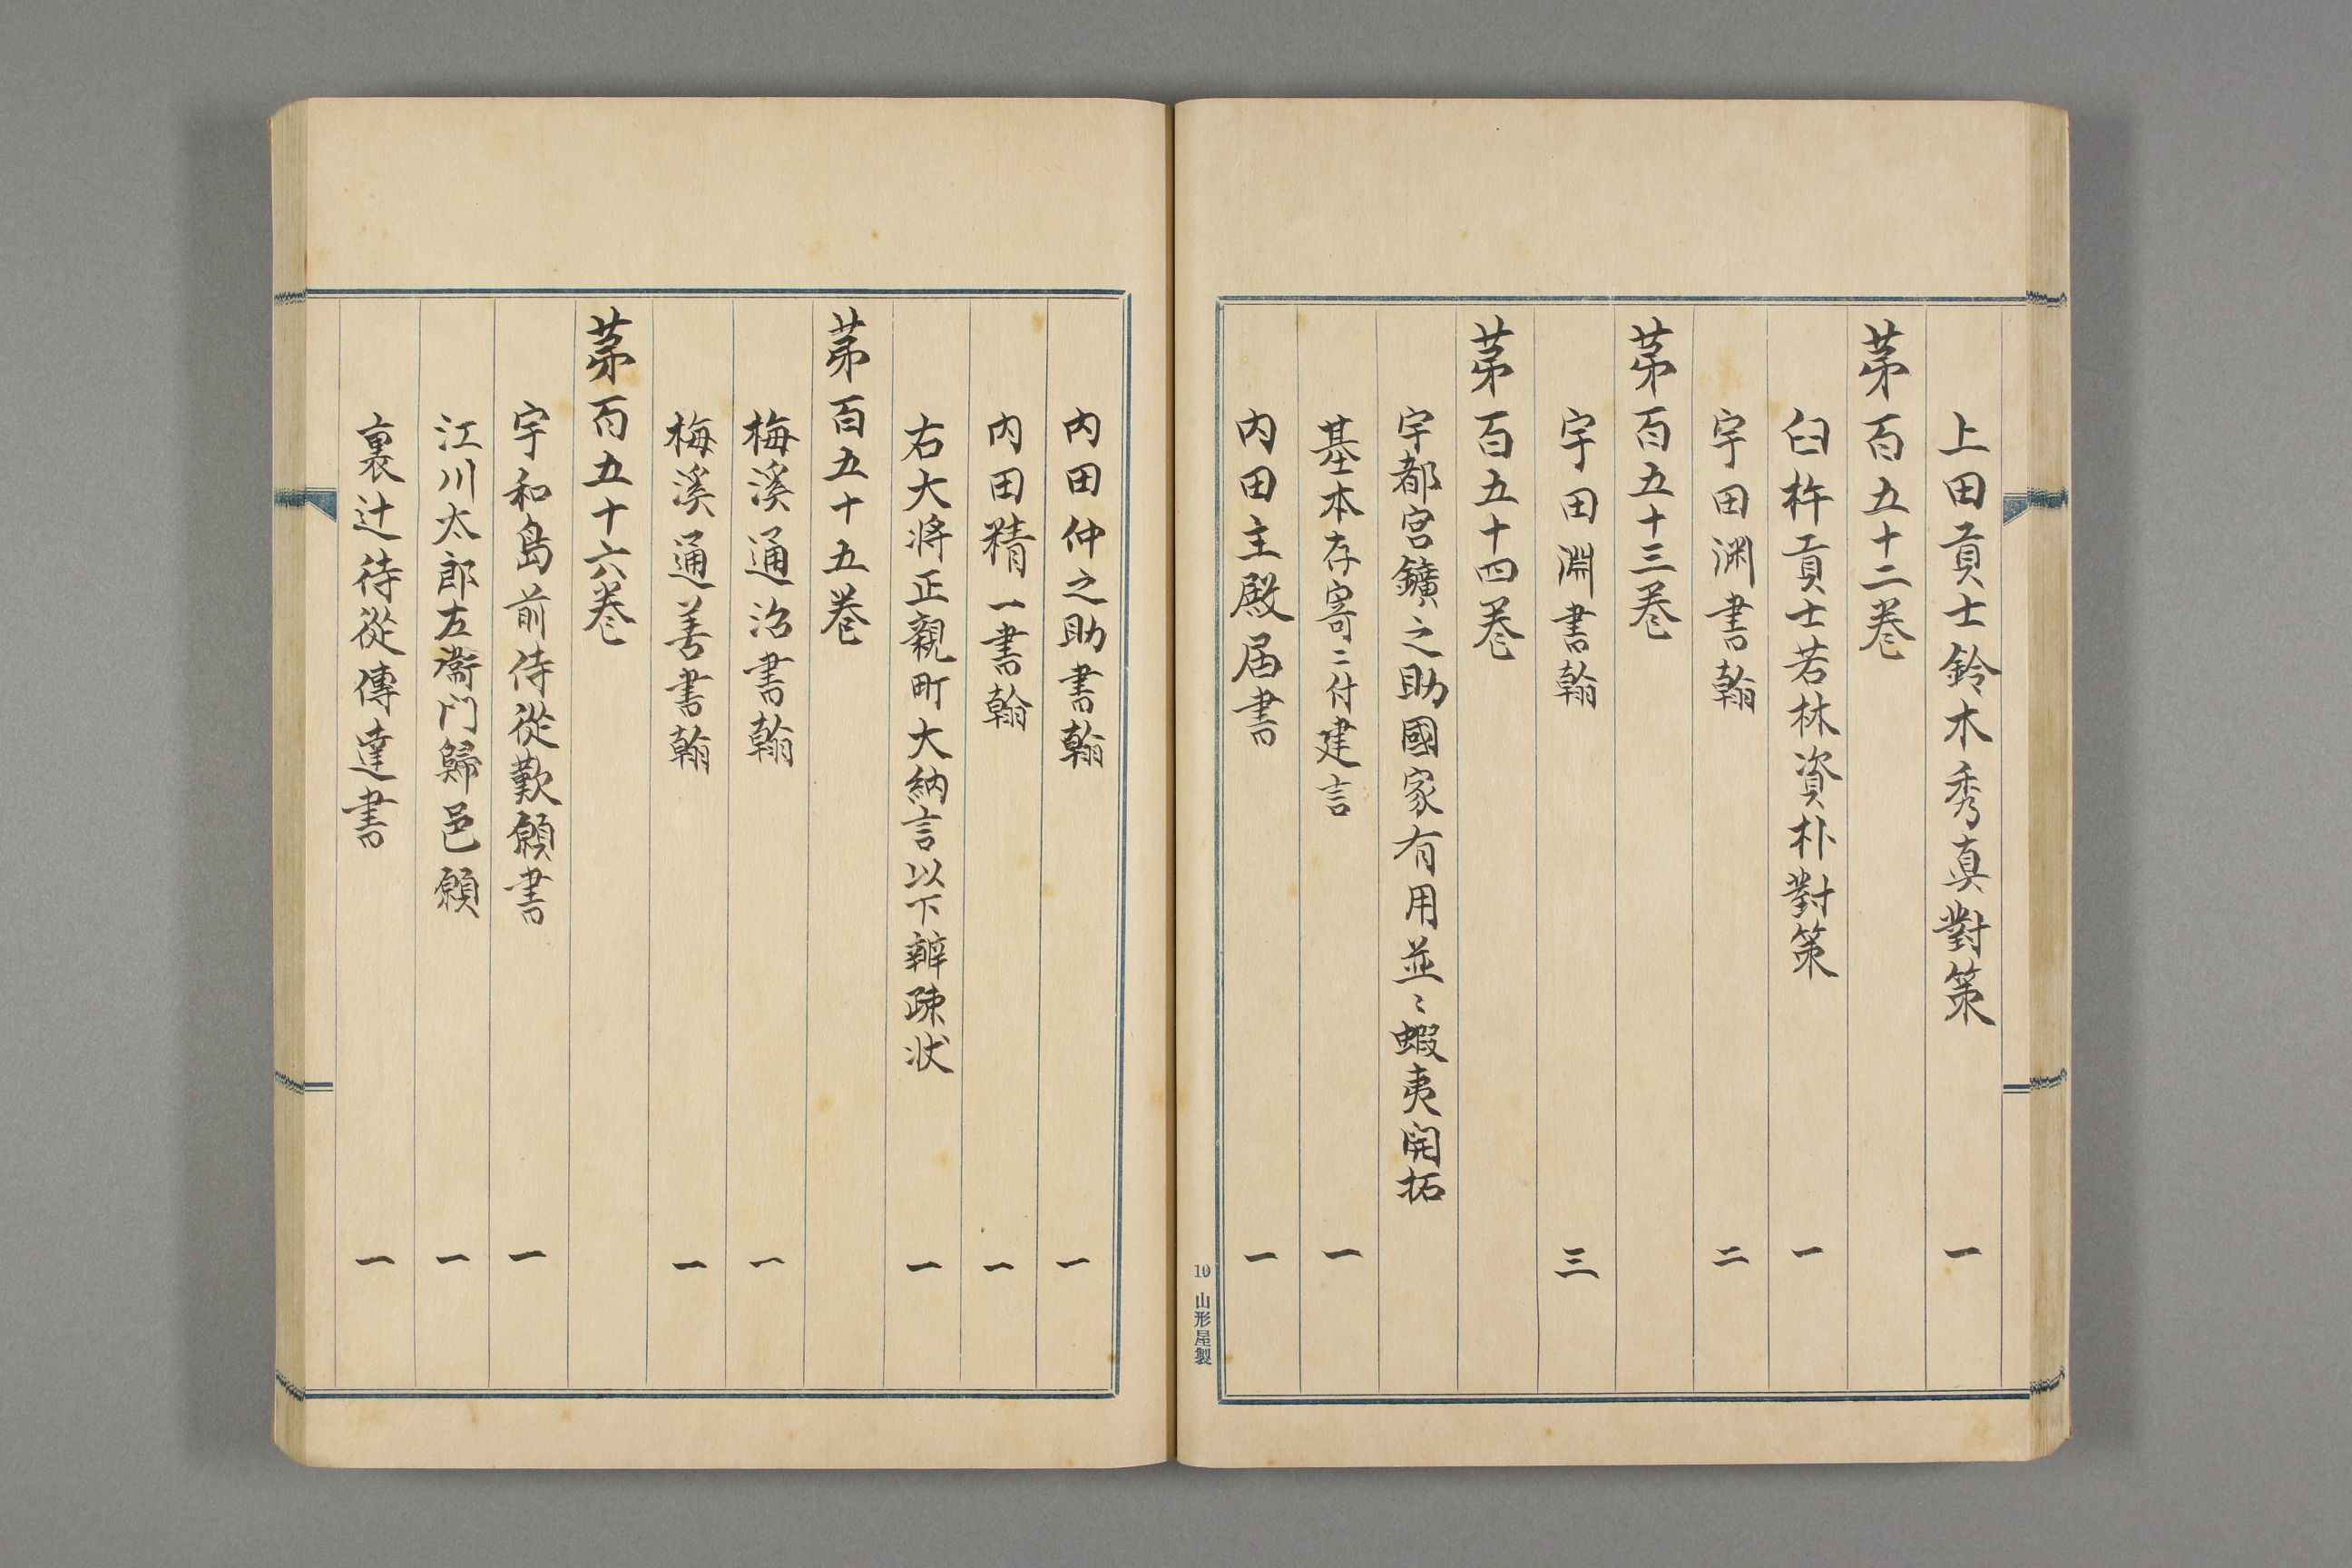 上田貢士鈴木秀真對策 一
第百五十二巻
臼杵貢士若林資朴對策 一
宇田渕書翰 二
第百五十三巻
宇田淵書翰 三
第百五十四巻
宇都宮鑛之助國家有用並ニ蝦夷開拓
基本存寄ニ付建言 一
内田主殿届書 一
10 山形屋製
内田仲之助書翰 一
内田精一書翰 一
右大将正親町大納言以下辨疎状 一
第百五十五巻
梅溪通治書翰 一
梅溪通善書翰 一
第百五十六巻
宇和島前侍從歎願書 一
江川太郎左衞門歸邑願 一
裏辻待從傳達書 一